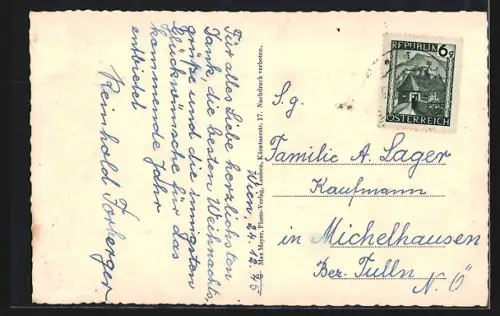 Wien, 21.12.45
Für alles Liebe herzlichsten
Dank, die besten Weihnachts,
grüße und die innigsten
Glückwünsche für das
kommende Jahr
entbietet
Reinhold
Max Mayer, Photo-Verlag, Leoben, Kärntnerstr. 17. Nachdruck verboten.
REPUBLIK 6g
ÖSTERREICH
S. g.
Familie A. Lager
Kaufmann
in Michelhausen
Bez. Tulln
N. Ö